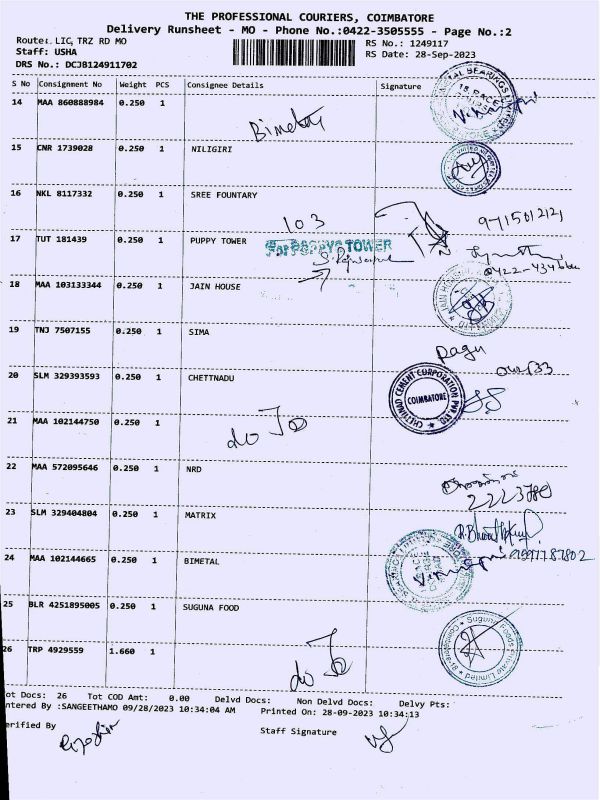 THE PROFESSIONAL COURIERS, COIMBATORE
Delivery Runsheet - MO - Phone No.:0422-3505555 - Page No.:2
Route: LIC, TRZ RD MO
RS No.: 1249117
Staff: USHA
RS Date: 28-Sep-2023
DRS No.: DCJB124911702
S No Consignment No Weight PCS Consignee Details Signature
14 MAA 860888984 0.250 1
Bimetal
15 CNR 1739028 0.250 1 NILIGIRI
16 NKL 8117332 0.250 1 SREE FOUNTARY
103
9715012121
17 TUT 181439 0.250 1 PUPPY TOWER
For PAPPYS TOWER
18 MAA 103133344 0.250 1 JAIN HOUSE
19 TNJ 7507155 0.250 1 SIMA
Ragu
20 SLM 329393593 0.250 1 CHETTNADU
CHETTINAD CEMENT CORPORATION PVT LTD
COIMBATORE
21 MAA 102144750 0.250 1
22 MAA 572095646 0.250 1 NRD
23 SLM 329404804 0.250 1 MATRIX
24 MAA 102144665 0.250 1 BIMETAL
25 BLR 4251895005 0.250 1 SUGUNA FOOD
Suguna Foods Private Limited
26 TRP 4929559 1.660 1
ot Docs: 26 Tot COD Amt: 0.00 Delvd Docs: Non Delvd Docs: Delvy Pts:
ntered By :SANGEETHAMO 09/28/2023 10:34:04 AM Printed On: 28-09-2023 10:34:13
erified By
Staff Signature